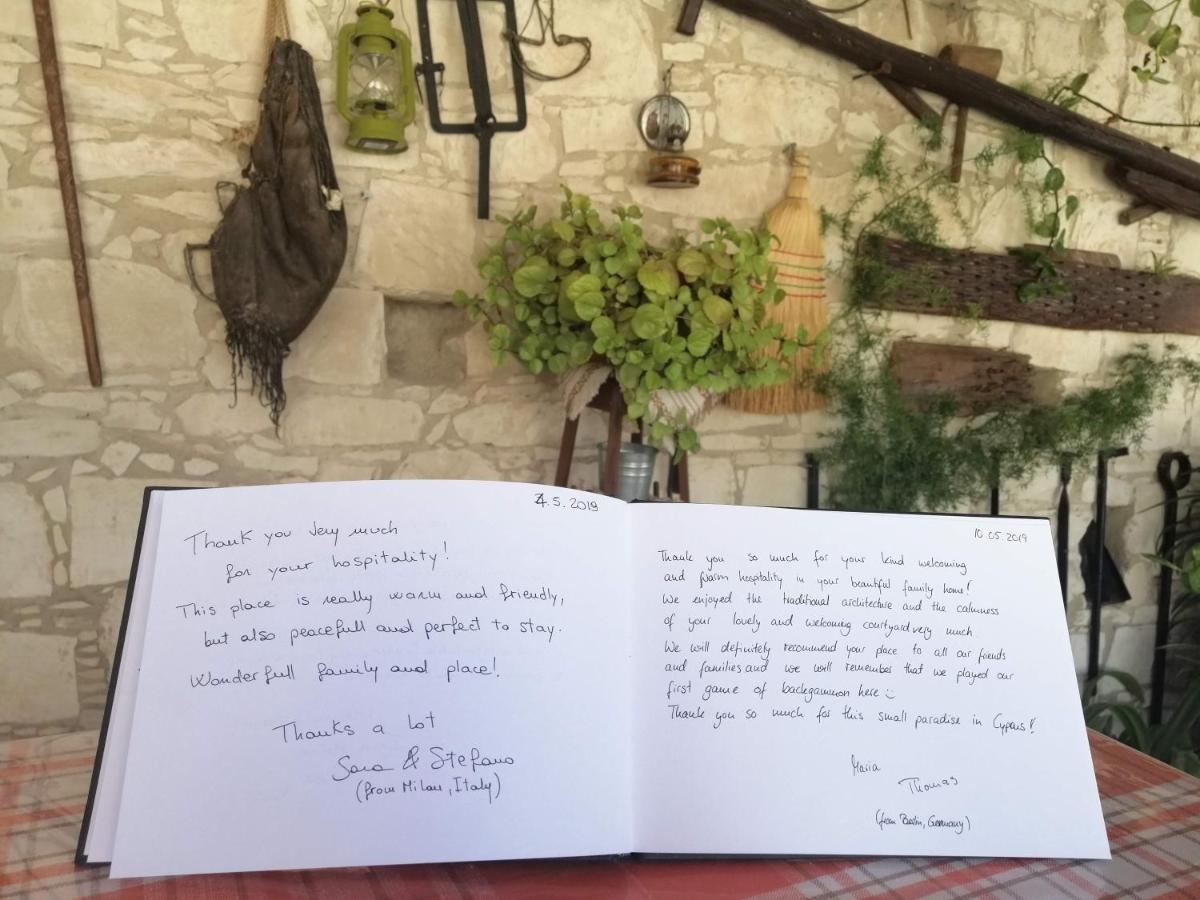 4.5.2019
Thank you very much
for your hospitality!
This place is really warm and friendly,
but also peacefull and perfect to stay.
Wonderfull family and place!
Thanks a lot
Sara & Stefano
(from Milan, Italy)
10.05.2019
Thank you so much for your kind welcoming
and warm hospitality in your beautiful family home!
We enjoyed the traditional architecture and the calmness
of your lovely and welcoming courtyard very much.
We will definitely recommend your place to all our friends
and families and we will remember that we played our
first game of backgammon here :)
Thank you so much for this small paradise in Cyprus!
Maria
Thomas
(from Berlin, Germany)